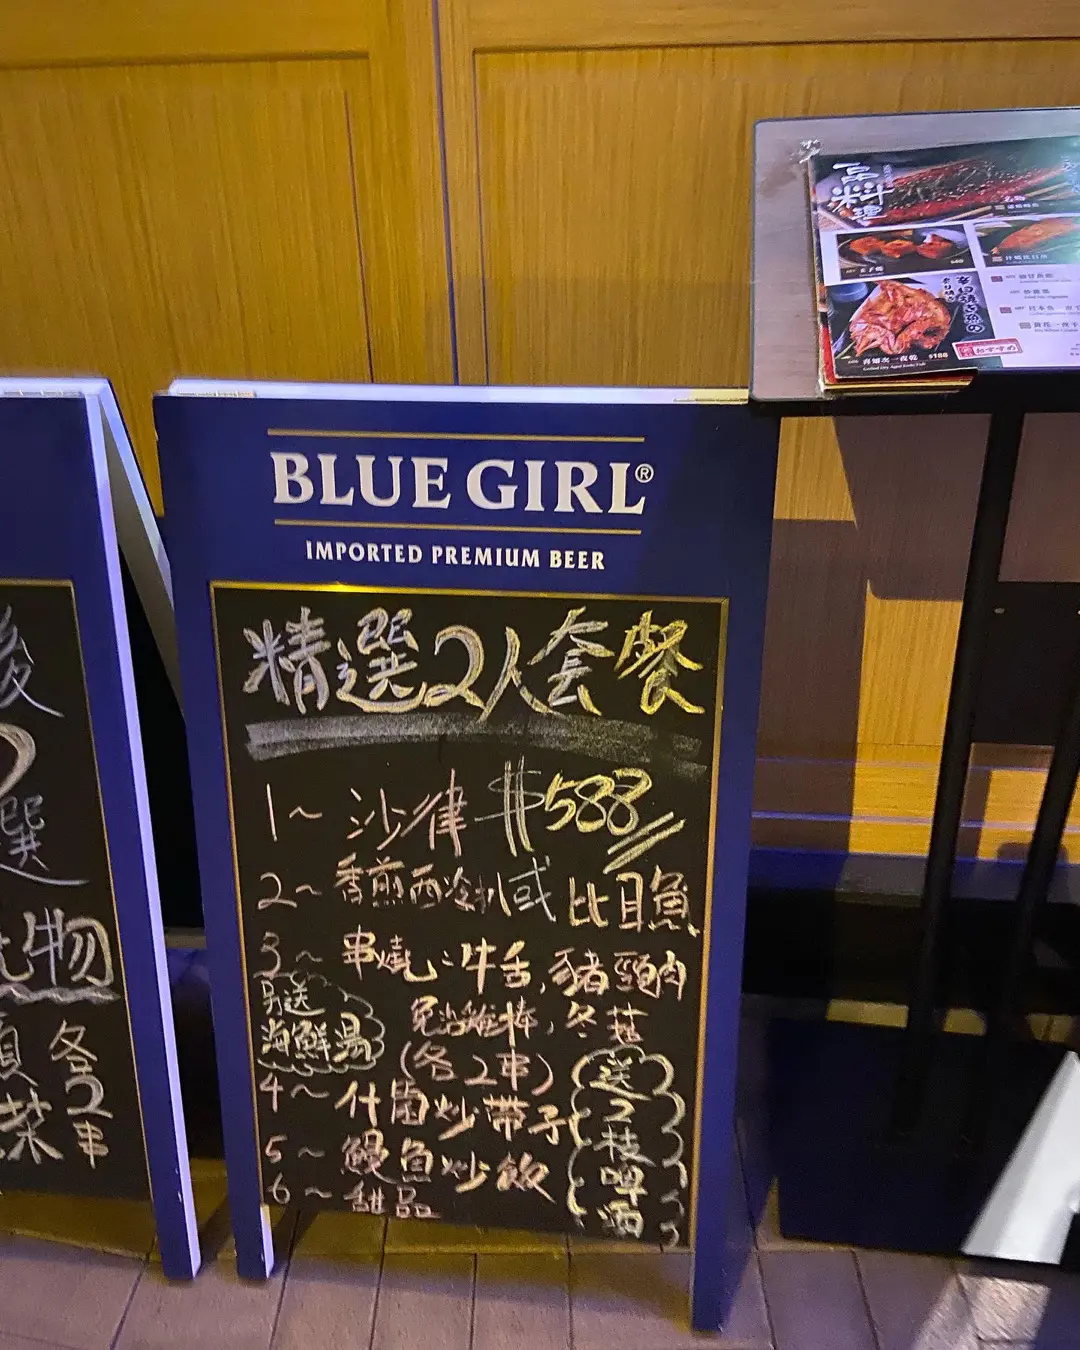 BLUE GIRL®
IMPORTED PREMIUM BEER
精選2人套餐
1~ 沙律 $588
2~ 香煎西冷扒或比目魚
3~ 串燒：牛舌,豬頸肉
免治雞棒,冬菇
(各2串)
另送
海鮮湯
4~ 什菌炒帶子
5~ 鰻魚炒飯
6~ 甜品
送2枝啤酒
後
選
物
各2串
菜
一品料理
$188
おすすめ